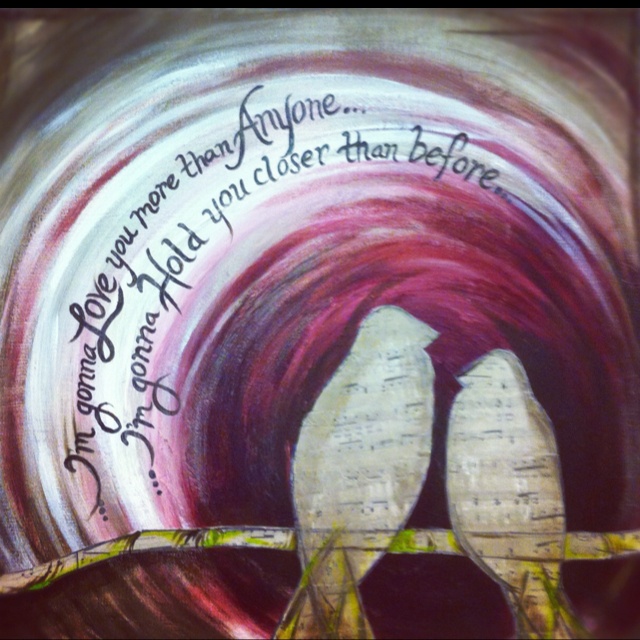 ...I'm gonna Love you more than Anyone...
...I'm gonna Hold you closer than before...